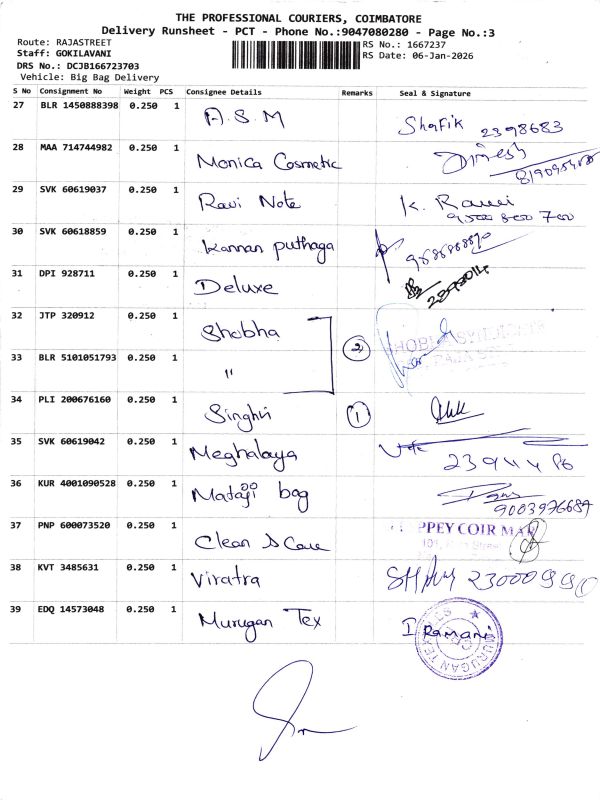 THE PROFESSIONAL COURIERS, COIMBATORE
Delivery Runsheet - PCT - Phone No.:9047080280 - Page No.:3
Route: RAJASTREET
Staff: GOKILAVANI
DRS No.: DCJB166723703
Vehicle: Big Bag Delivery
RS No.: 1667237
RS Date: 06-Jan-2026
S No Consignment No Weight PCS Consignee Details Remarks Seal & Signature
27 BLR 1450888398 0.250 1 A.S.M Shafik 2398683
28 MAA 714744982 0.250 1 Monica Cosmetic Dinesh
29 SVK 60619037 0.250 1 Ravi Note K. Ravi
9500 800 700
30 SVK 60618859 0.250 1 Kannan puthaga
31 DPI 928711 0.250 1 Deluxe
32 JTP 320912 0.250 1 Shobha
2
33 BLR 5101051793 0.250 1 "
34 PLI 200676160 0.250 1 Singhvi 1
35 SVK 60619042 0.250 1 Meghalaya 2394486
36 KUR 4001090528 0.250 1 Mataji bag
9003976687
37 PNP 600073520 0.250 1 Clean & Care PPEY COIR MAR
38 KVT 3485631 0.250 1 Viratra 2300099
39 EDQ 14573048 0.250 1 Murugan Tex Ramani
MURUGAN TEX